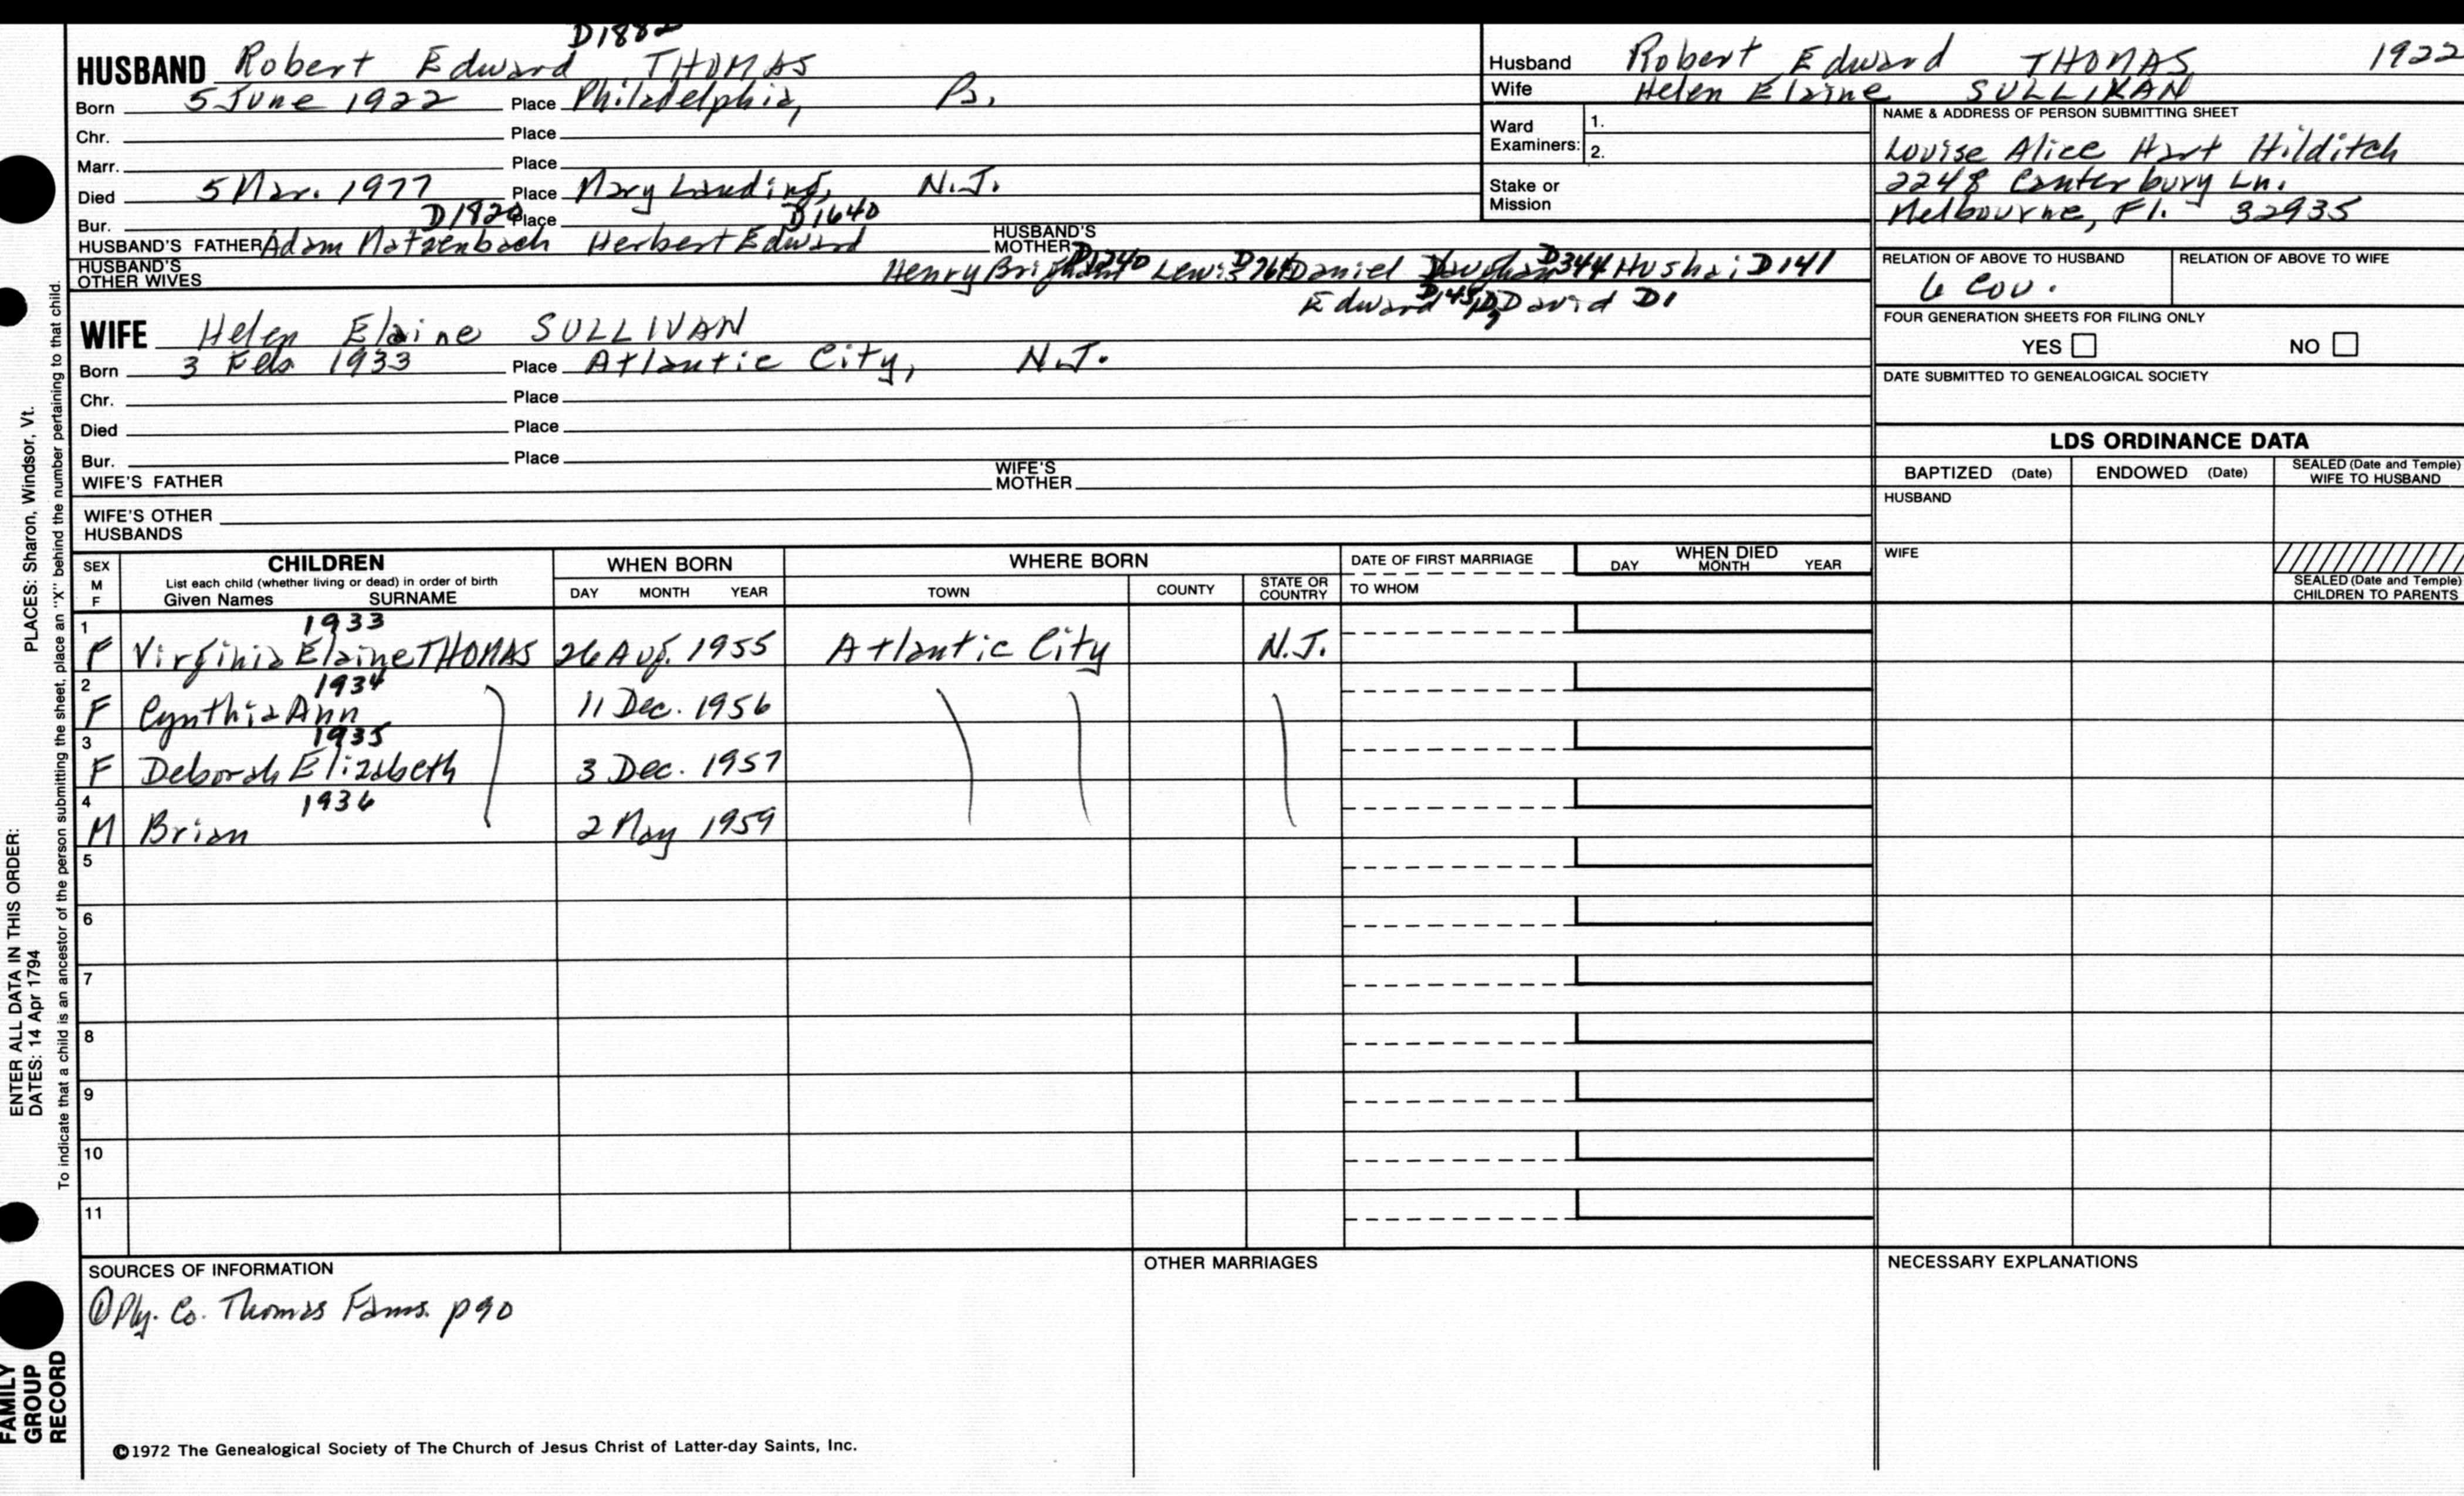 D1882
HUSBAND Robert Edward THOMAS
Born 5 June 1922 Place Philadelphia, Pa.
Chr. Place
Marr. Place
Died 5 Mar. 1977 Place Mary Landing, N.J.
Bur. D1820 Place D1640
HUSBAND'S FATHER Adam Matzenbach Herbert Edward HUSBAND'S MOTHER
HUSBAND'S OTHER WIVES Henry Brigham D1240 Lewis D764 Daniel D344 Hushai D141
Edward D45, David D1
WIFE Helen Elaine SULLIVAN
Born 3 Feb. 1933 Place Atlantic City, N.J.
Chr. Place
Died Place
Bur. Place
WIFE'S FATHER WIFE'S MOTHER
WIFE'S OTHER HUSBANDS
Husband Robert Edward THOMAS 1922
Wife Helen Elaine SULLIVAN
Ward Examiners: 1.
2.
Stake or Mission
NAME & ADDRESS OF PERSON SUBMITTING SHEET
Louise Alice Hart Hilditch
2248 Canterbury Ln.
Melbourne, Fl. 32935
RELATION OF ABOVE TO HUSBAND RELATION OF ABOVE TO WIFE
6 Cou.
FOUR GENERATION SHEETS FOR FILING ONLY
YES NO
DATE SUBMITTED TO GENEALOGICAL SOCIETY
LDS ORDINANCE DATA
BAPTIZED (Date) ENDOWED (Date) SEALED (Date and Temple) WIFE TO HUSBAND
HUSBAND
WIFE
SEALED (Date and Temple) CHILDREN TO PARENTS
SEX M F CHILDREN WHEN BORN WHERE BORN DATE OF FIRST MARRIAGE WHEN DIED
List each child (whether living or dead) in order of birth
Given Names SURNAME DAY MONTH YEAR TOWN COUNTY STATE OR COUNTRY TO WHOM DAY MONTH YEAR
1 1933
F Virginia Elaine THOMAS 26 Aug. 1955 Atlantic City N.J.
2 1934
F Cynthia Ann 11 Dec. 1956
3 1935
F Deborah Elizabeth 3 Dec. 1957
4 1936
M Brian 2 May 1959
5
6
7
8
9
10
11
SOURCES OF INFORMATION OTHER MARRIAGES NECESSARY EXPLANATIONS
① Ply. Co. Thomas Fams. p90
©1972 The Genealogical Society of The Church of Jesus Christ of Latter-day Saints, Inc.
ENTER ALL DATA IN THIS ORDER:
DATES: 14 Apr 1794 PLACES: Sharon, Windsor, Vt.
To indicate that a child is an ancestor of the person submitting the sheet, place an "X" behind the number pertaining to that child.
FAMILY GROUP RECORD